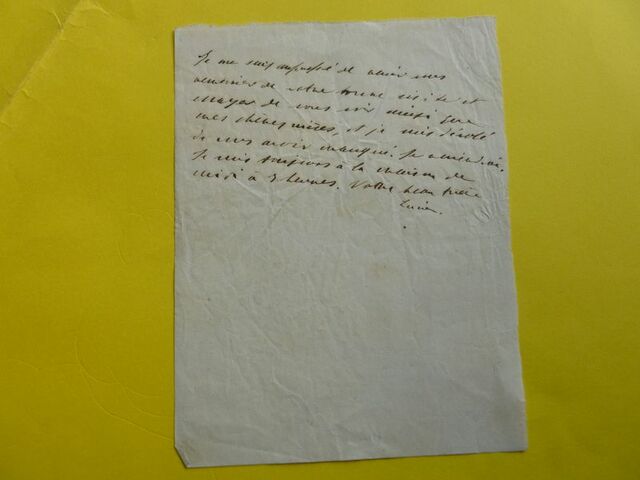 Je me suis empressé de venir vous
remercier de votre bonne visite et
de vous voir ainsi que
mes chères nièces, et je suis désolé
de vous avoir manqué. Je reviendrai.
Je suis toujours à la maison de
midi à 3 heures. Votre beau frère
Lucien.